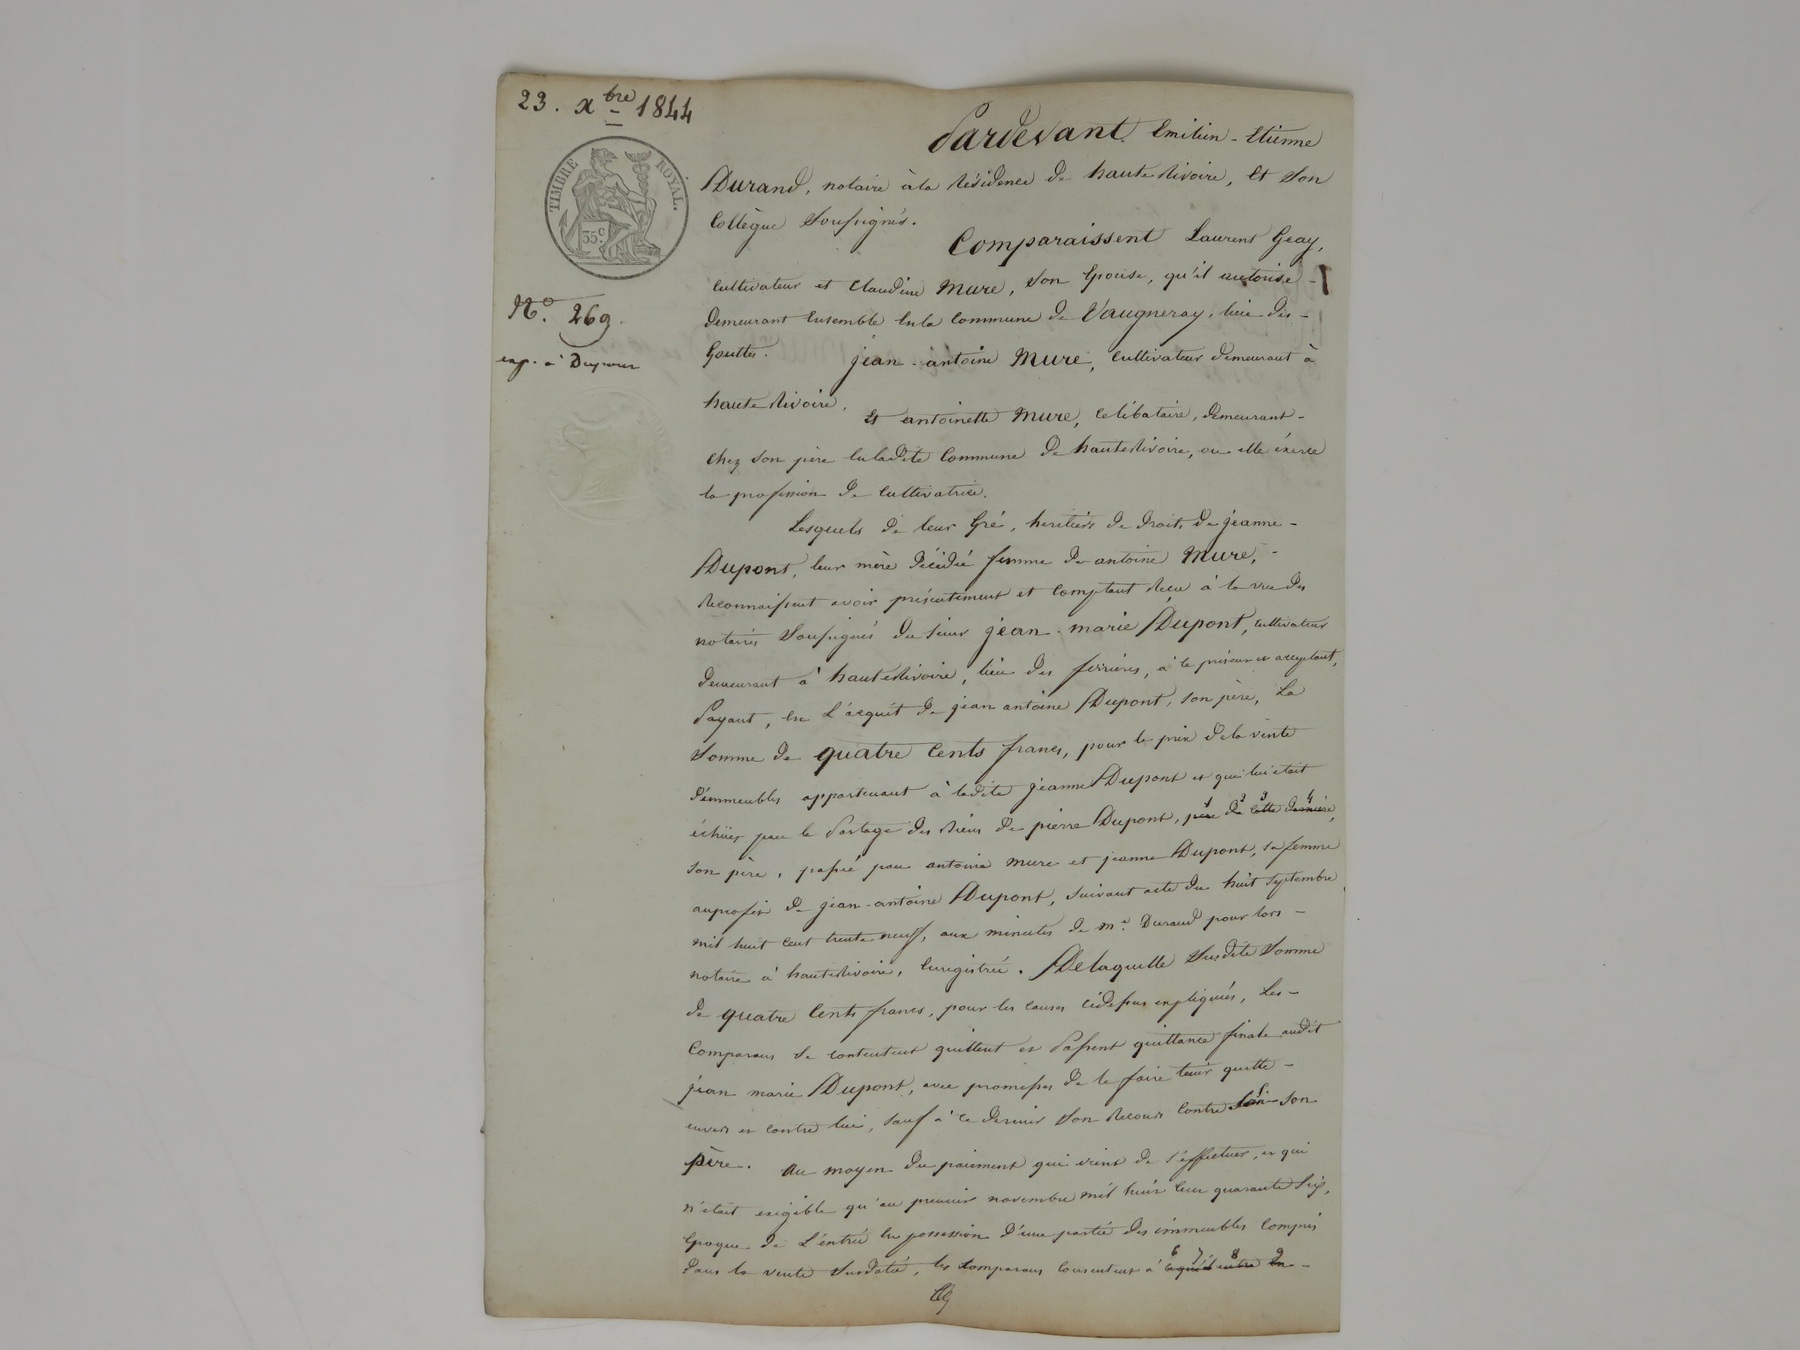 23. xbre 1844
TIMBRE ROYAL.
35 c
No. 269.
exp. à Dupont
Pardevant Emilien - Etienne
Durand, notaire à la Résidence de hauterivoire, et son
Collègue soussignés.
Comparaissent Laurent Geay,
cultivateur et Claudine Mure, son épouse, qu'il autorise -
demeurant ensemble en la commune de Vaugneray, lieu des -
Gouttes.
jean - antoine Mure, cultivateur demeurant à
hauterivoire.
Et antoinette Mure, célibataire, demeurant -
chez son père en ladite Commune de hauterivoire, ou elle éxerce
la profession de cultivatrice.
Lesquels de leur Gré, heritiers de droits de jeanne -
Dupont, leur mère décédée femme de antoine Mure, -
Reconnaissent avoir présentement et comptant Reçu à la vue des
notaires soussignés du sieur jean - marie Dupont, cultivateur
demeurant à hauterivoire, lieu des ferrières, à ce présent et acceptant,
Payant, en L'acquit de jean antoine Dupont, son père, La
Somme de quatre Cents francs, pour le prix de la vente
d'immeubles appartenant à ladite jeanne Dupont et qui lui était
échus par le Partage des Biens de pierre Dupont, père de cette dernière,
1 2 3 4
son père, passé par antoine Mure et jeanne Dupont, sa femme
auprofit de jean - antoine Dupont, suivant acte du huit septembre
mil huit cent trente neuf, aux minutes de Me. Durand pour lors -
notaire à hauterivoire, Enregistrée. De laquelle susdite somme
de quatre Cents francs, pour les causes cidessus expliquées, Les -
Comparans se contentent quittent et Passent quittance finale audit
jean marie Dupont, avec promesses de le faire tenir quitte -
envers et contre lui, sauf à ce dernier son Recours contre son - son
père. Au moyen du paiement qui vient de s'effectuer, et qui
n'était exigible qu'au premier novembre mil huit cent quarante six,
Epoque de L'entrée en possession d'une partie des immeubles compris
dans la vente susdatée, les comparans consentent à ce qu'il entre en -
6 7 8 9